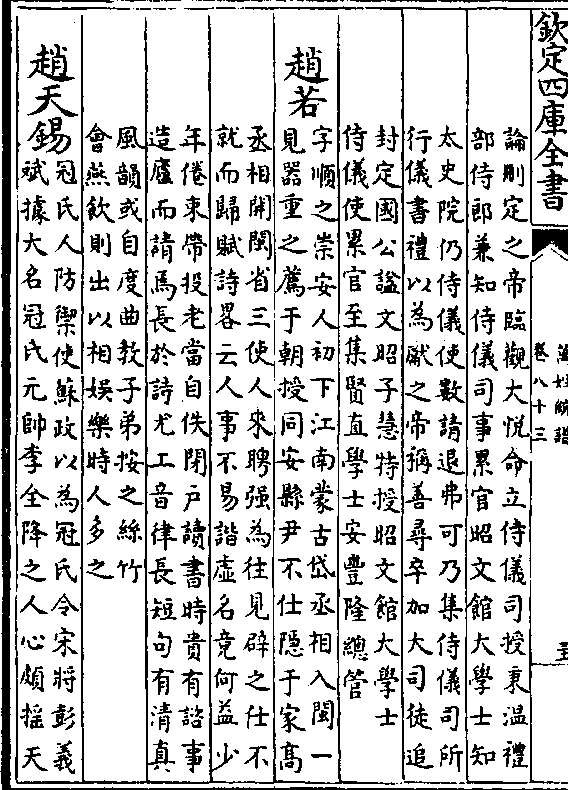 欽定四庫全書
萬姓統譜
卷八十三
論刪定之帝臨觀大悅命立侍儀司授秉温禮
部侍郎兼知侍儀司事累官昭文館大學士知
太史院仍侍儀使數請退弗可乃集侍儀司所
行儀書禮以為獻之帝稱善尋卒加大司徒追
封定國公諡文昭子慧特授昭文館大學士
侍儀使累官至集賢直學士安豐隆總管
趙若
字順之崇安人初下江南蒙古岱丞相入閩一
見器重之薦于朝授同安縣尹不仕隱于家髙
丞相開閩省三使人來聘强為往見辟之仕不
就而歸賦詩畧云人事不易諧虛名竟何益少
年倦束帶投老當自佚閉户讀書時貴有諮事
造廬而請焉長於詩尤工音律長短句有清真
風韻或自度曲教子弟按之絲竹
會燕飲則出以相娛樂時人多之
趙天錫
冠氏人防禦使蘇政以為冠氏令宋將彭義
斌據大名冠氏元帥李全降之人心頗搖天